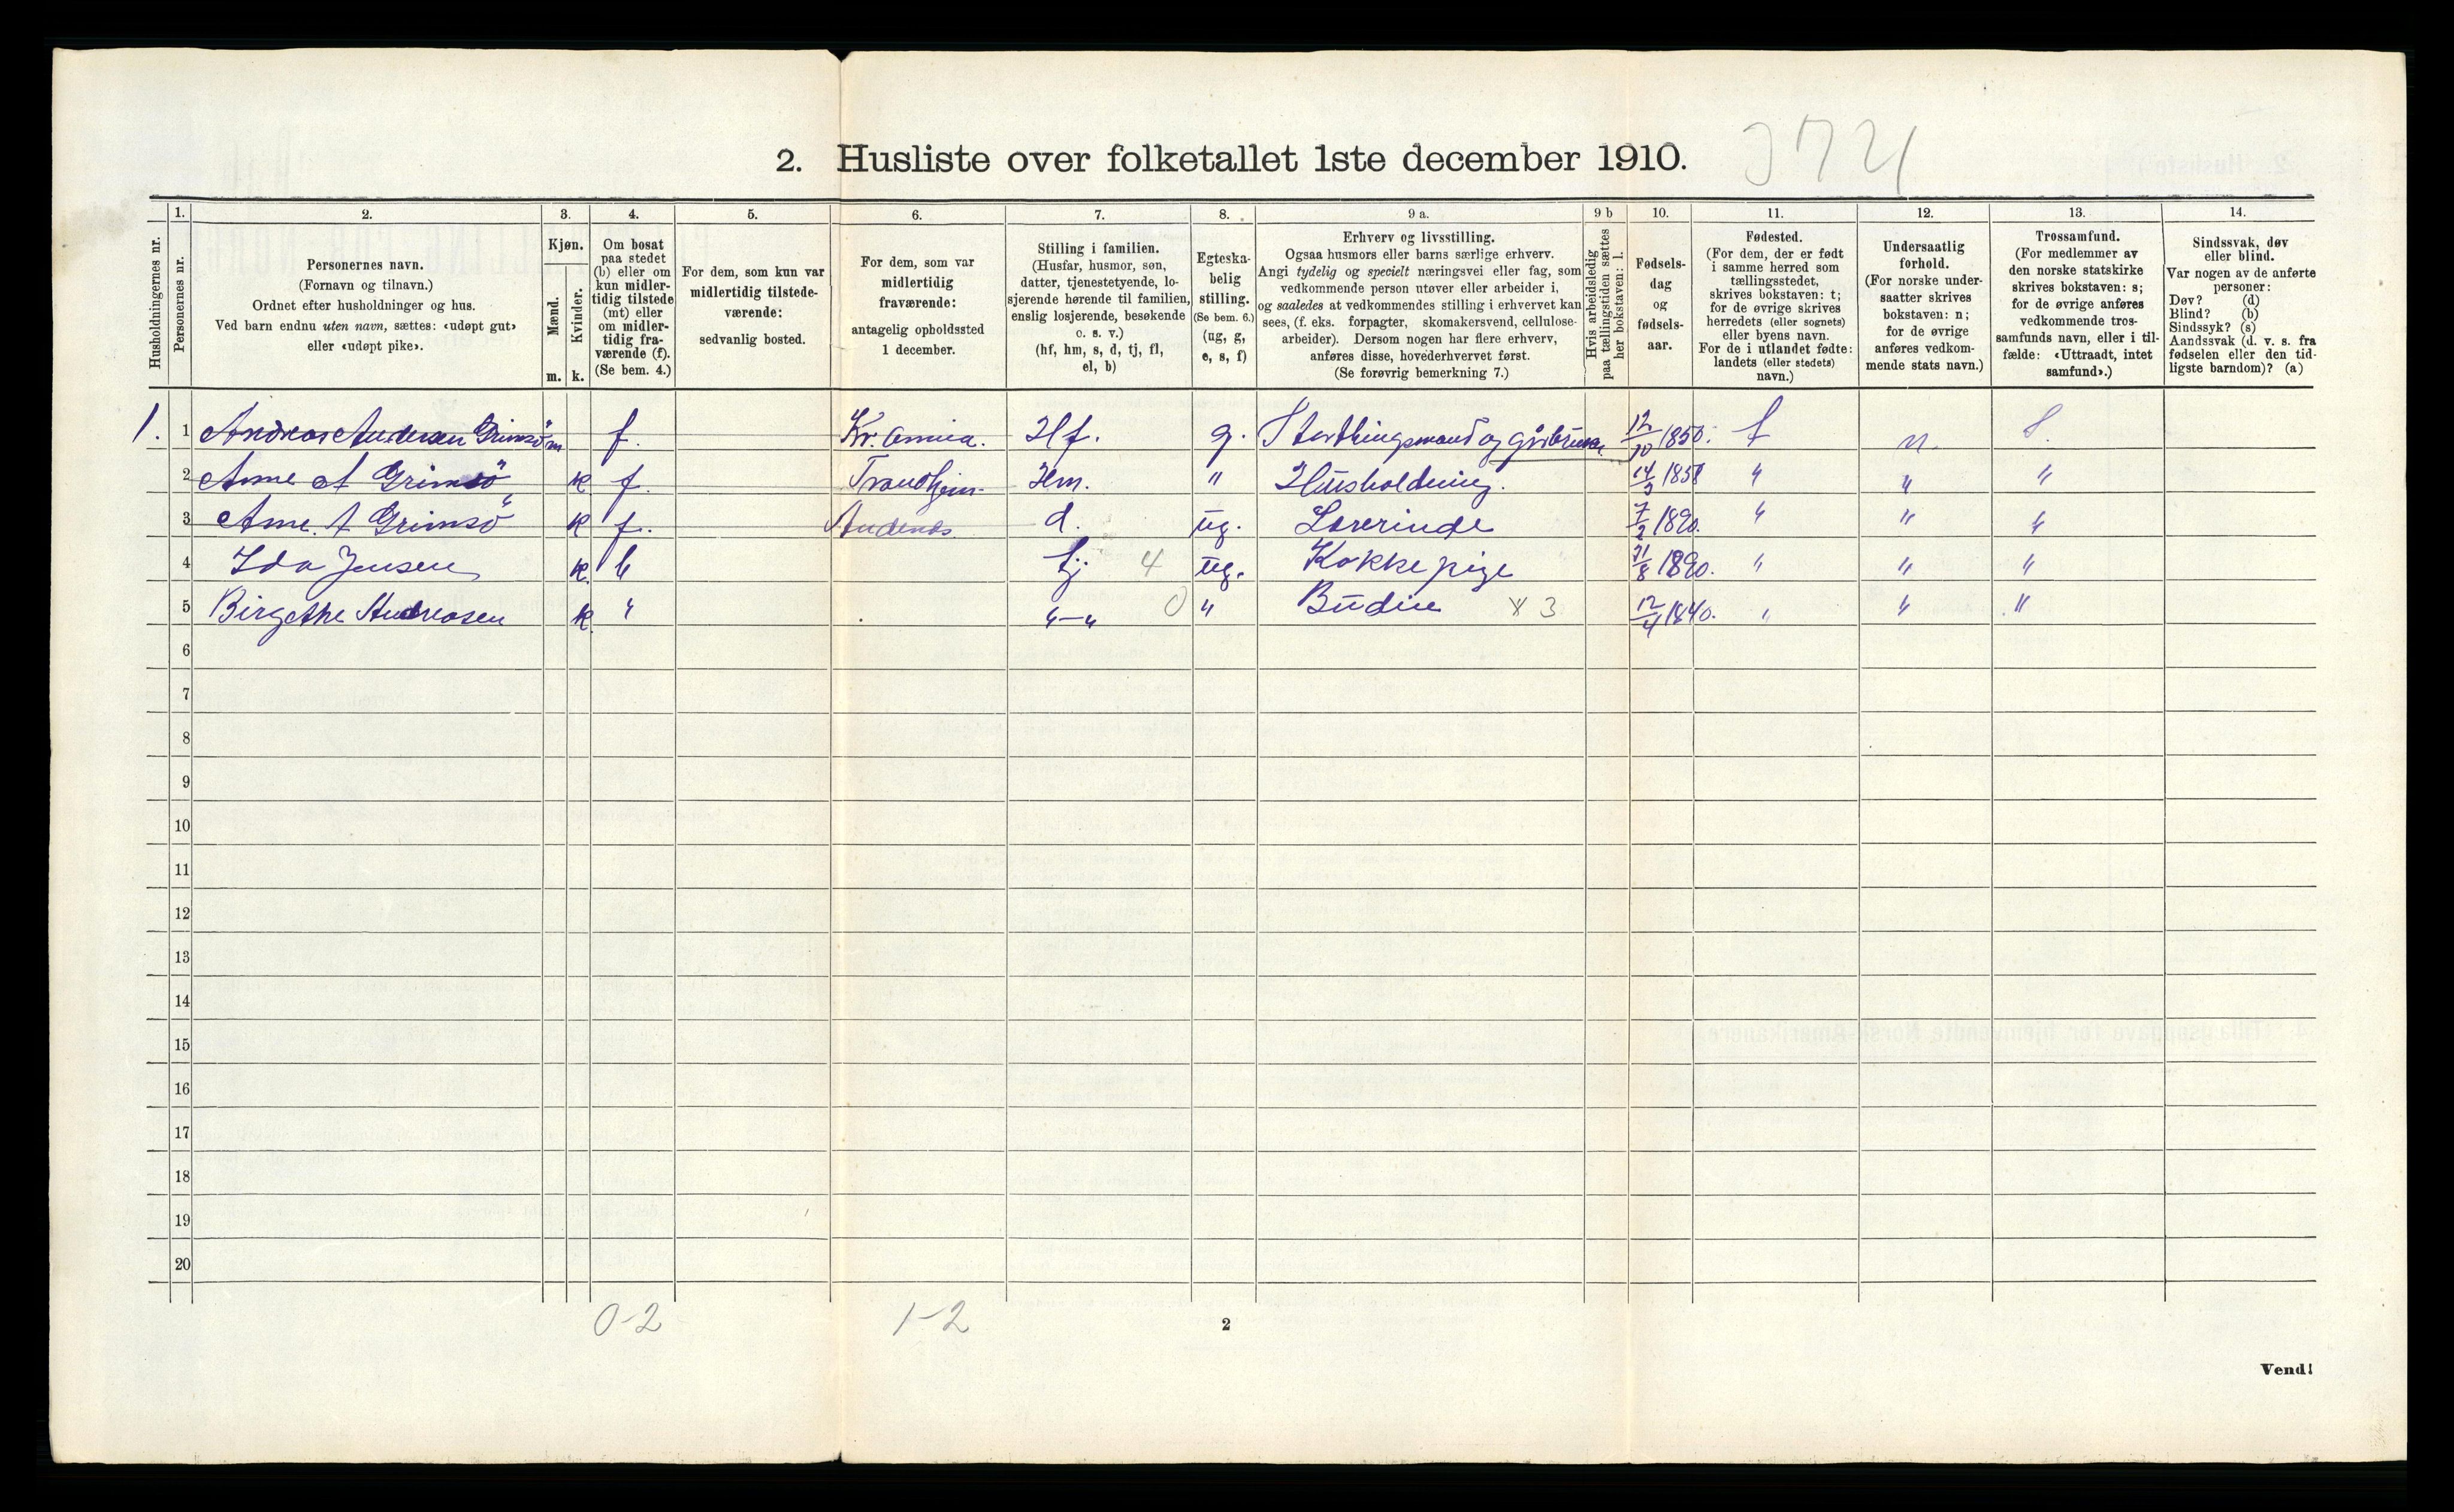 2. Husliste over folketallet 1ste december 1910.
1. 2. 3. 4. 5. 6. 7. 8. 9 a. 9 b 10. 11. 12. 13. 14.
Husholdningernes nr.
Personernes nr.
Personernes navn.
(Fornavn og tilnavn.)
Ordnet efter husholdninger og hus.
Ved barn endnu uten navn, sættes: «udøpt gut»
eller «udøpt pike».
Kjøn.
Mænd.
Kvinder.
m. k.
Om bosat
paa stedet
(b) eller om
kun midler-
tidig tilstede
(mt) eller
om midler-
tidig fra-
værende (f).
(Se bem. 4.)
For dem, som kun var
midlertidig tilstede-
værende:
sedvanlig bosted.
For dem, som var
midlertidig
fraværende:
antagelig opholdssted
1 december.
Stilling i familien.
(Husfar, husmor, søn,
datter, tjenestetyende, lo-
sjerende hørende til familien,
enslig losjerende, besøkende
o. s. v.)
(hf, hm, s, d, tj, fl,
el, b)
Egteska-
belig
stilling.
(Se bem. 6.)
(ug, g,
e, s, f)
Erhverv og livsstilling.
Ogsaa husmors eller barns særlige erhverv.
Angi tydelig og specielt næringsvei eller fag, som
vedkommende person utøver eller arbeider i,
og saaledes at vedkommendes stilling i erhvervet kan
sees, (f. eks. forpagter, skomakersvend, cellulose-
arbeider). Dersom nogen har flere erhverv,
anføres disse, hovederhvervet først.
(Se forøvrig bemerkning 7.)
Hvis arbeidsledig
paa tællingstiden sættes
her bokstaven: l.
Fødsels-
dag
og
fødsels-
aar.
Fødested.
(For dem, der er født
i samme herred som
tællingsstedet,
skrives bokstaven: t;
for de øvrige skrives
herredets (eller sognets)
eller byens navn.
For de i utlandet fødte:
landets (eller stedets)
navn.)
Undersaatlig
forhold.
(For norske under-
saatter skrives
bokstaven: n;
for de øvrige
anføres vedkom-
mende stats navn.)
Trossamfund.
(For medlemmer av
den norske statskirke
skrives bokstaven: s;
for de øvrige anføres
vedkommende tros-
samfunds navn, eller i til-
fælde: «Uttraadt, intet
samfund».)
Sindssvak, døv
eller blind.
Var nogen av de anførte
personer:
Døv? (d)
Blind? (b)
Sindssyk? (s)
Aandssvak (d. v. s. fra
fødselen eller den tid-
ligste barndom)? (a)
1. 1 Andreas Andersen Grimsö m f. Kr.annia. Hf. g. Storthingsmand og gårbruker 12/10 1850. t n. S.
2 Anne A Grimsö k f. Trondhjem. Hm. " Husholdning. 14/3 " " "
3 Anne A Grimsö k f. Andenes d. ug. Lærerinde 7/2 1890. " " "
4 Ida Jensen k. b tj 4 ug. Kokkepige 21/8 1890. " " "
5 Birgethe Andreasen k. " "-" 0 " Budeie 3 12/4 1840. " " "
6
7
8
9
10
11
12
13
14
15
16
17
18
19
20
0-2 1-2
2
Vend!